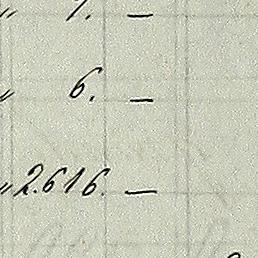 „ 6. —
„ 2.616. —